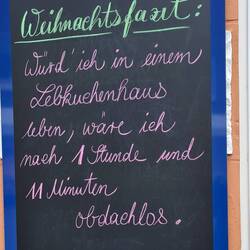 Weihnachtsfazit:
Würd' ich in einem
Lebkuchenhaus
leben, wäre ich
nach 1 Stunde und
11 Minuten
obdachlos.